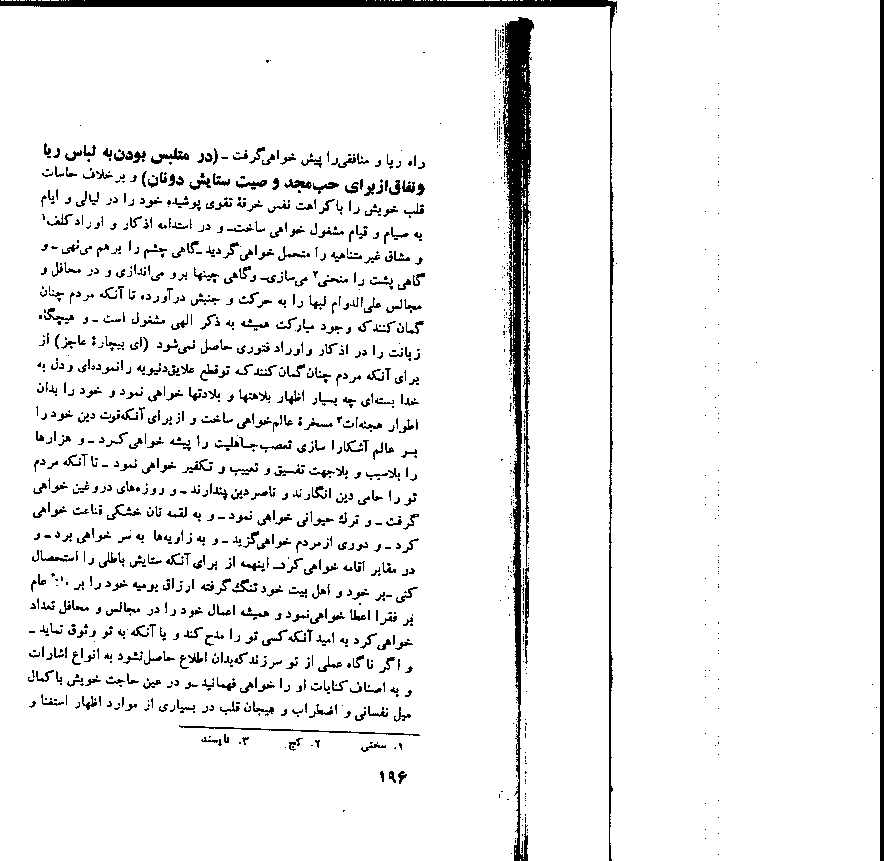 راه ریا و منافقی را پیش خواهی گرفت ـ (در متلبس بودن به لباس ریا
و نفاق از برای حب مجد و صیت ستایش دونان) و بر خلاف حاسات
قلب خویش را با کراهت نفس خرقهٔ تقوی پوشیده خود را در لیالی و ایام
به صیام و قیام مشغول خواهی ساخت ـ و در استدامه اذکار و اوراد کلف۱
و مشاق غیر متناهیه را متحمل خواهی گردید ـ گاهی چشم را بر هم می‌نهی ـ و
گاهی پشت را منحنی۲ می‌سازی ـ و گاهی چینها برو می‌اندازی و در محافل و
مجالس علی‌الدوام لبها را به حرکت و جنبش درآورده تا آنکه مردم چنان
گمان کنند که وجود مبارکت همیشه به ذکر الهی مشغول است ـ و هیچگاه
زبانت را در اذکار و اوراد فتوری حاصل نمی‌شود (ای بیچارهٔ عاجز) از
برای آنکه مردم چنان گمان کنند که تو قطع علایق دنیویه را نموده‌ای و دل به
خدا بسته‌ای چه بسیار اظهار بلاهتها و بلادتها خواهی نمود و خود را بدان
اطوار هجنه‌ات۳ مسخرهٔ عالم خواهی ساخت و از برای آنکه قوت دین خود را
بر عالم آشکارا سازی تعصب جاهلیت را پیشه خواهی کرد ـ و هزارها
را بلاسبب و بلاجهت تفسیق و تعییب و تکفیر خواهی نمود ـ تا آنکه مردم
تو را حامی دین انگارند و ناصر دین پندارند ـ و روزه‌های دروغین خواهی
گرفت ـ و ترك حیوانی خواهی نمود ـ و به لقمه نان خشکی قناعت خواهی
کرد ـ و دوری از مردم خواهی گزید ـ و به زاویه‌ها به سر خواهی برد ـ و
در مقابر اقامه خواهی کرد ـ اینهمه از برای آنکه ستایش باطلی را استحصال
کنی ـ بر خود و اهل بیت خود تنگ گرفته ارزاق یومیه خود را بر عام
بر فقرا اعطا خواهی نمود و همیشه اعمال خود را در مجالس و محافل تعداد
خواهی کرد به امید آنکه کسی تو را مدح کند و یا آنکه به تو وثوق نماید ـ
و اگر ناگاه عملی از تو سر زند که بدان اطلاع حاصل نشود به انواع اشارات
و به اصناف کنایات او را خواهی فهمانید ـ و در عین حاجت خویش باکمال
میل نفسانی و اضطراب و هیجان قلب در بسیاری از موارد اظهار استغنا و
۱. سختی ۲. کج ۳. ناپسند
۱۹۶